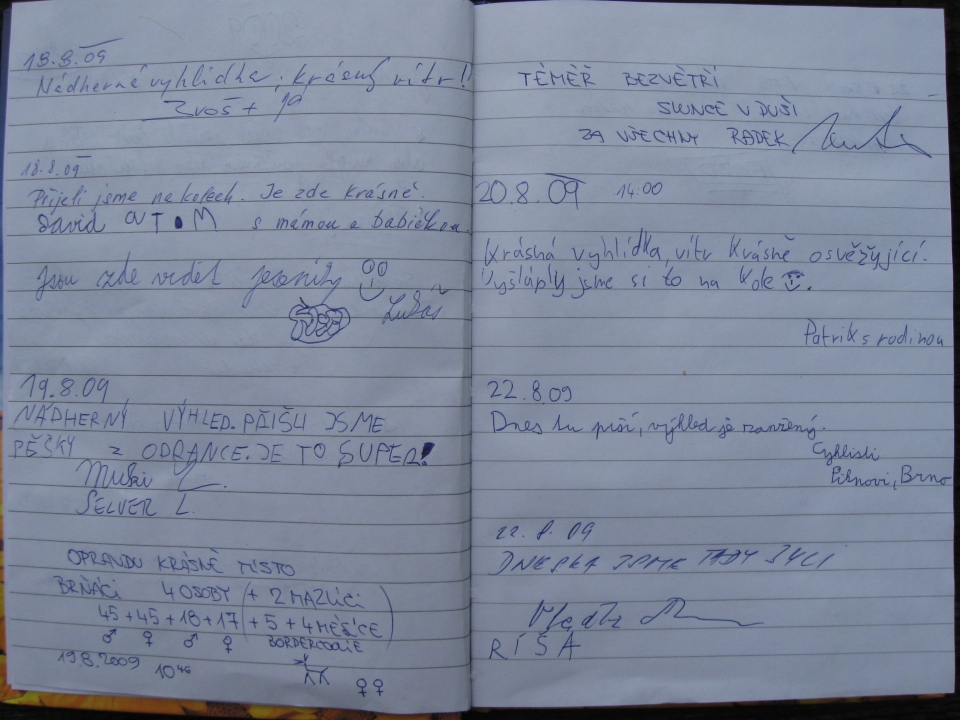 18.8.09
Nádherná vyhlídka, krásný vítr!
Zvoš + já
18.8.09
Přijeli jsme na kolech. Je zde krásně.
David s mámou a babičkou
Jsou zde vidět jeseníky
Lukáš
19.8.09
NÁDHERNÝ VÝHLED. PŘIŠLI JSME
PĚŠKY Z ODRANCE. JE TO SUPER!
SELVER L.
OPRAVDU KRÁSNÉ MÍSTO
BRŇÁCI 4 OSOBY (+ 2 MAZLÍCI
45 + 45 + 18 + 17 + 5 + 4 MĚSÍCE)
♂ ♀ ♂ ♀ BORDERCOLIE
19.8.2009 10
♀♀
TÉMĚŘ BEZVĚTŘÍ
SLUNCE V DUŠI
ZA VŠECHNY RADEK
20.8.09 14:00
Krásná vyhlídka, vítr krásně osvěžyjící.
Vyšláply jsme si to na kole
Patrik s rodinou
22.8.09
Dnes tu prší, výhled je
Cyklisti
Brno
22.8.09
DNESKA JSME TADY
RÍŠA